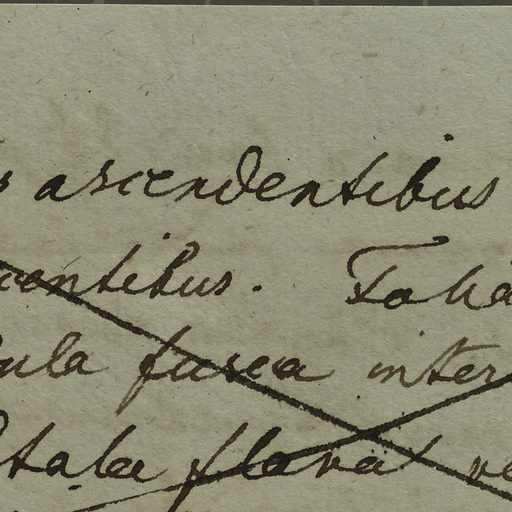 s ascendentibus
centibus. Folia
ula fusca inter
tala flava ve